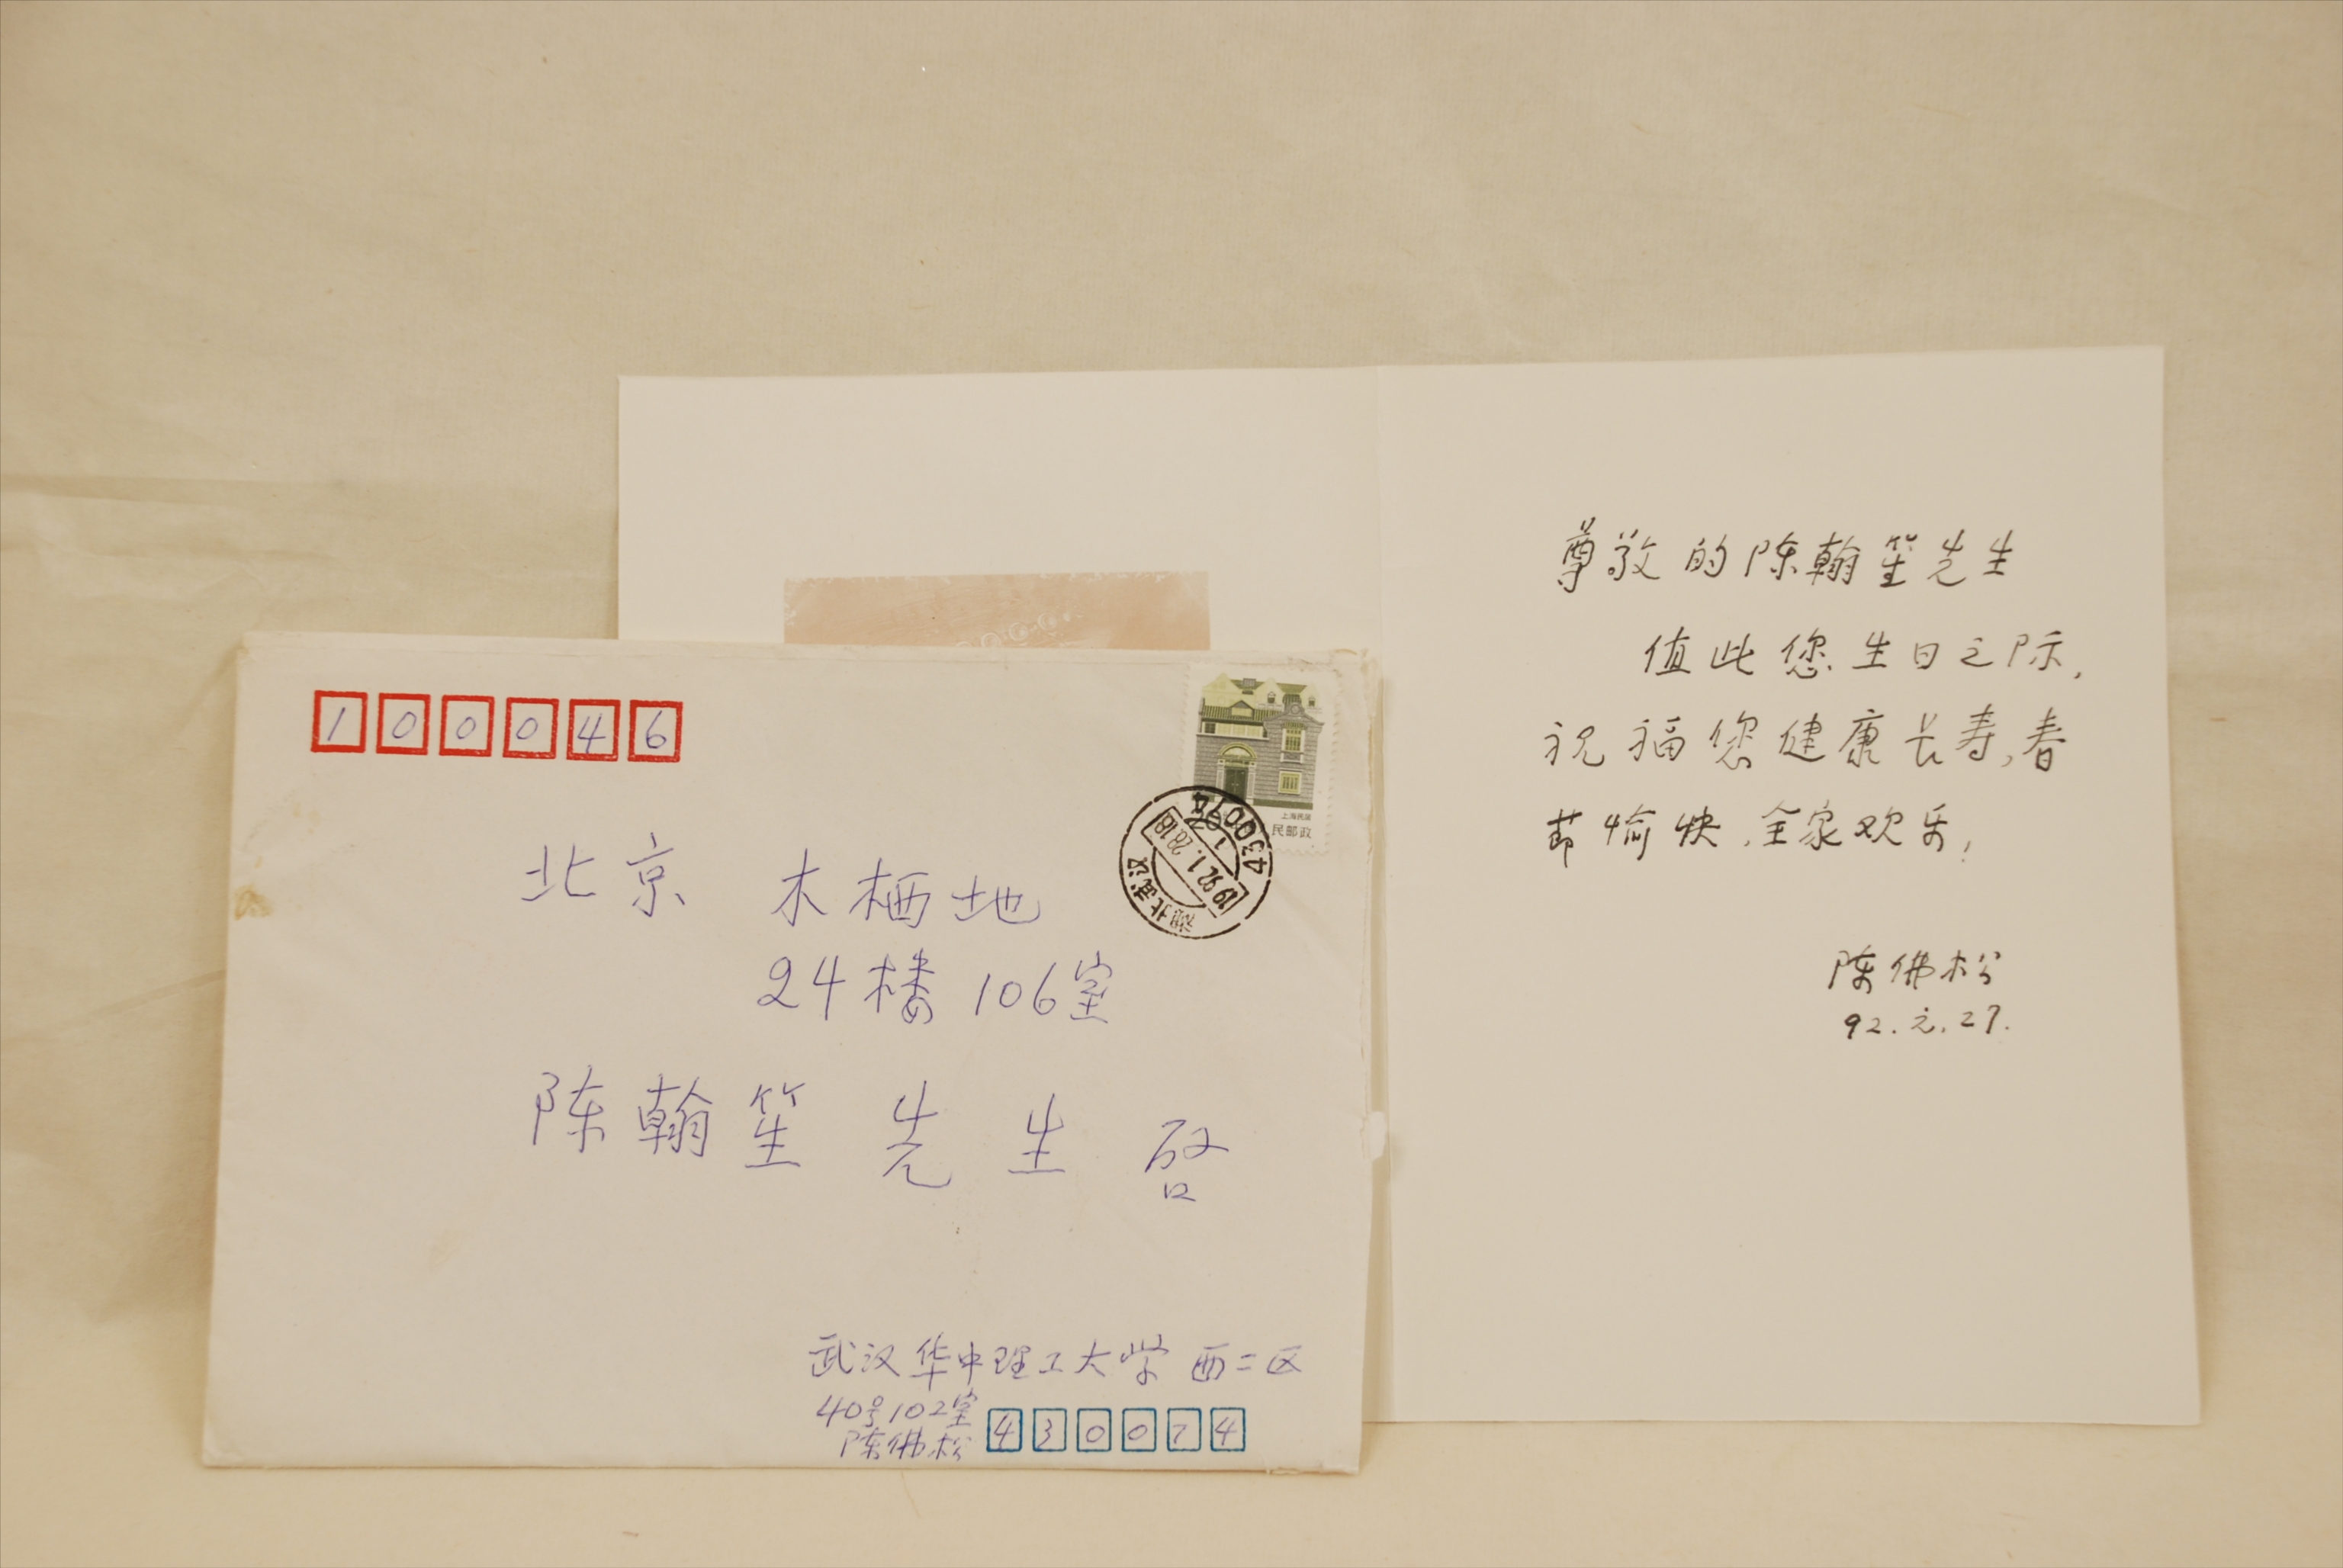 100046
北京 木栖地
24楼 106室
陈翰笙 先生 启
武汉华中理工大学 西二区
40号102室
陈佛松
430074
上海民居
民邮政
430074
1992.1.28.18
湖北武汉
尊敬的陈翰笙先生
值此您生日之际,
祝福您健康长寿,春
节愉快,全家欢乐!
陈佛松
92.元.27.